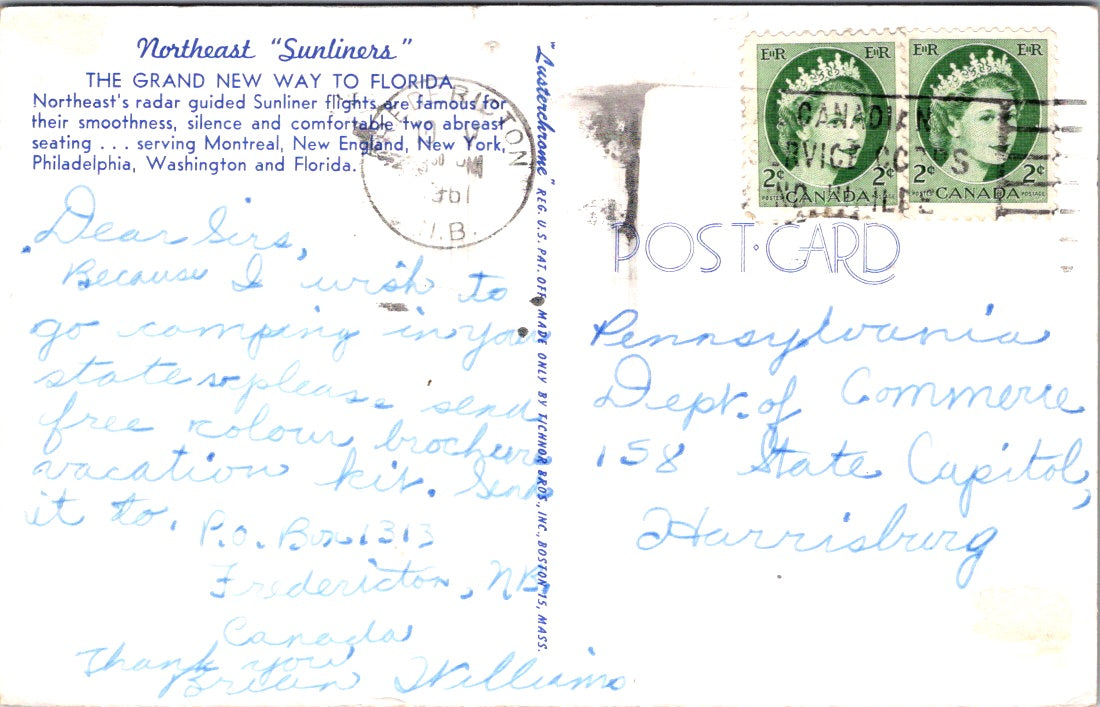 Northeast "Sunliners"
THE GRAND NEW WAY TO FLORIDA
Northeast's radar guided Sunliner flights are famous for
their smoothness, silence and comfortable two abreast
seating . . . serving Montreal, New England, New York,
Philadelphia, Washington and Florida.
Dear Sirs,
Because I wish to
go camping in your
state please send
free colour brochure
vacation kit. Send
it to.
P.O. Box 1313
Fredericton, NB
Canada
Thank you
Brian Williams
"Lusterchrome" REG. U.S. PAT. OFF. MADE ONLY BY TICHNOR BROS., INC., BOSTON 15, MASS.
FREDERICTON
1961
N.B.
EIIR EIIR
2¢ 2¢
POSTES CANADA POSTAGE
EIIR EIIR
2¢ 2¢
POSTES CANADA POSTAGE
CANADIAN
POST·CARD
Pennsylvania
Dept. of Commerce
158 State Capitol,
Harrisburg